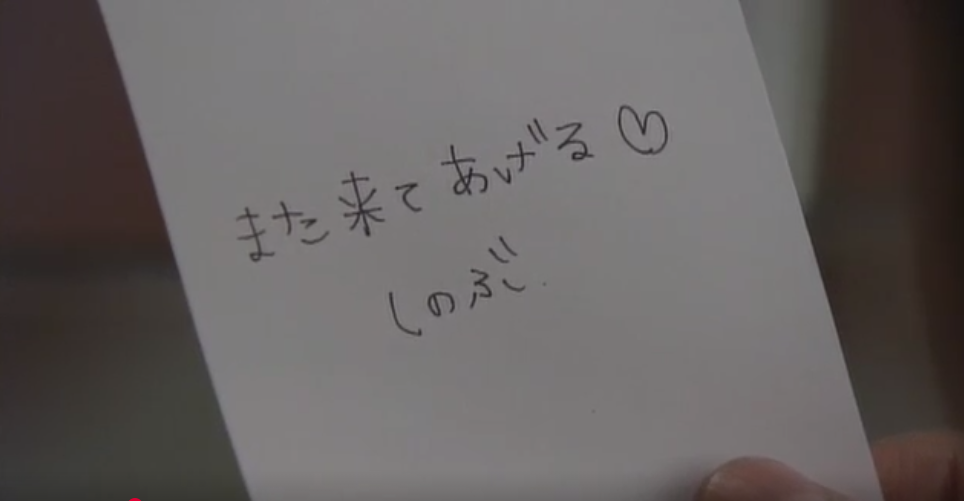 また来てあげる♡
しのぶ